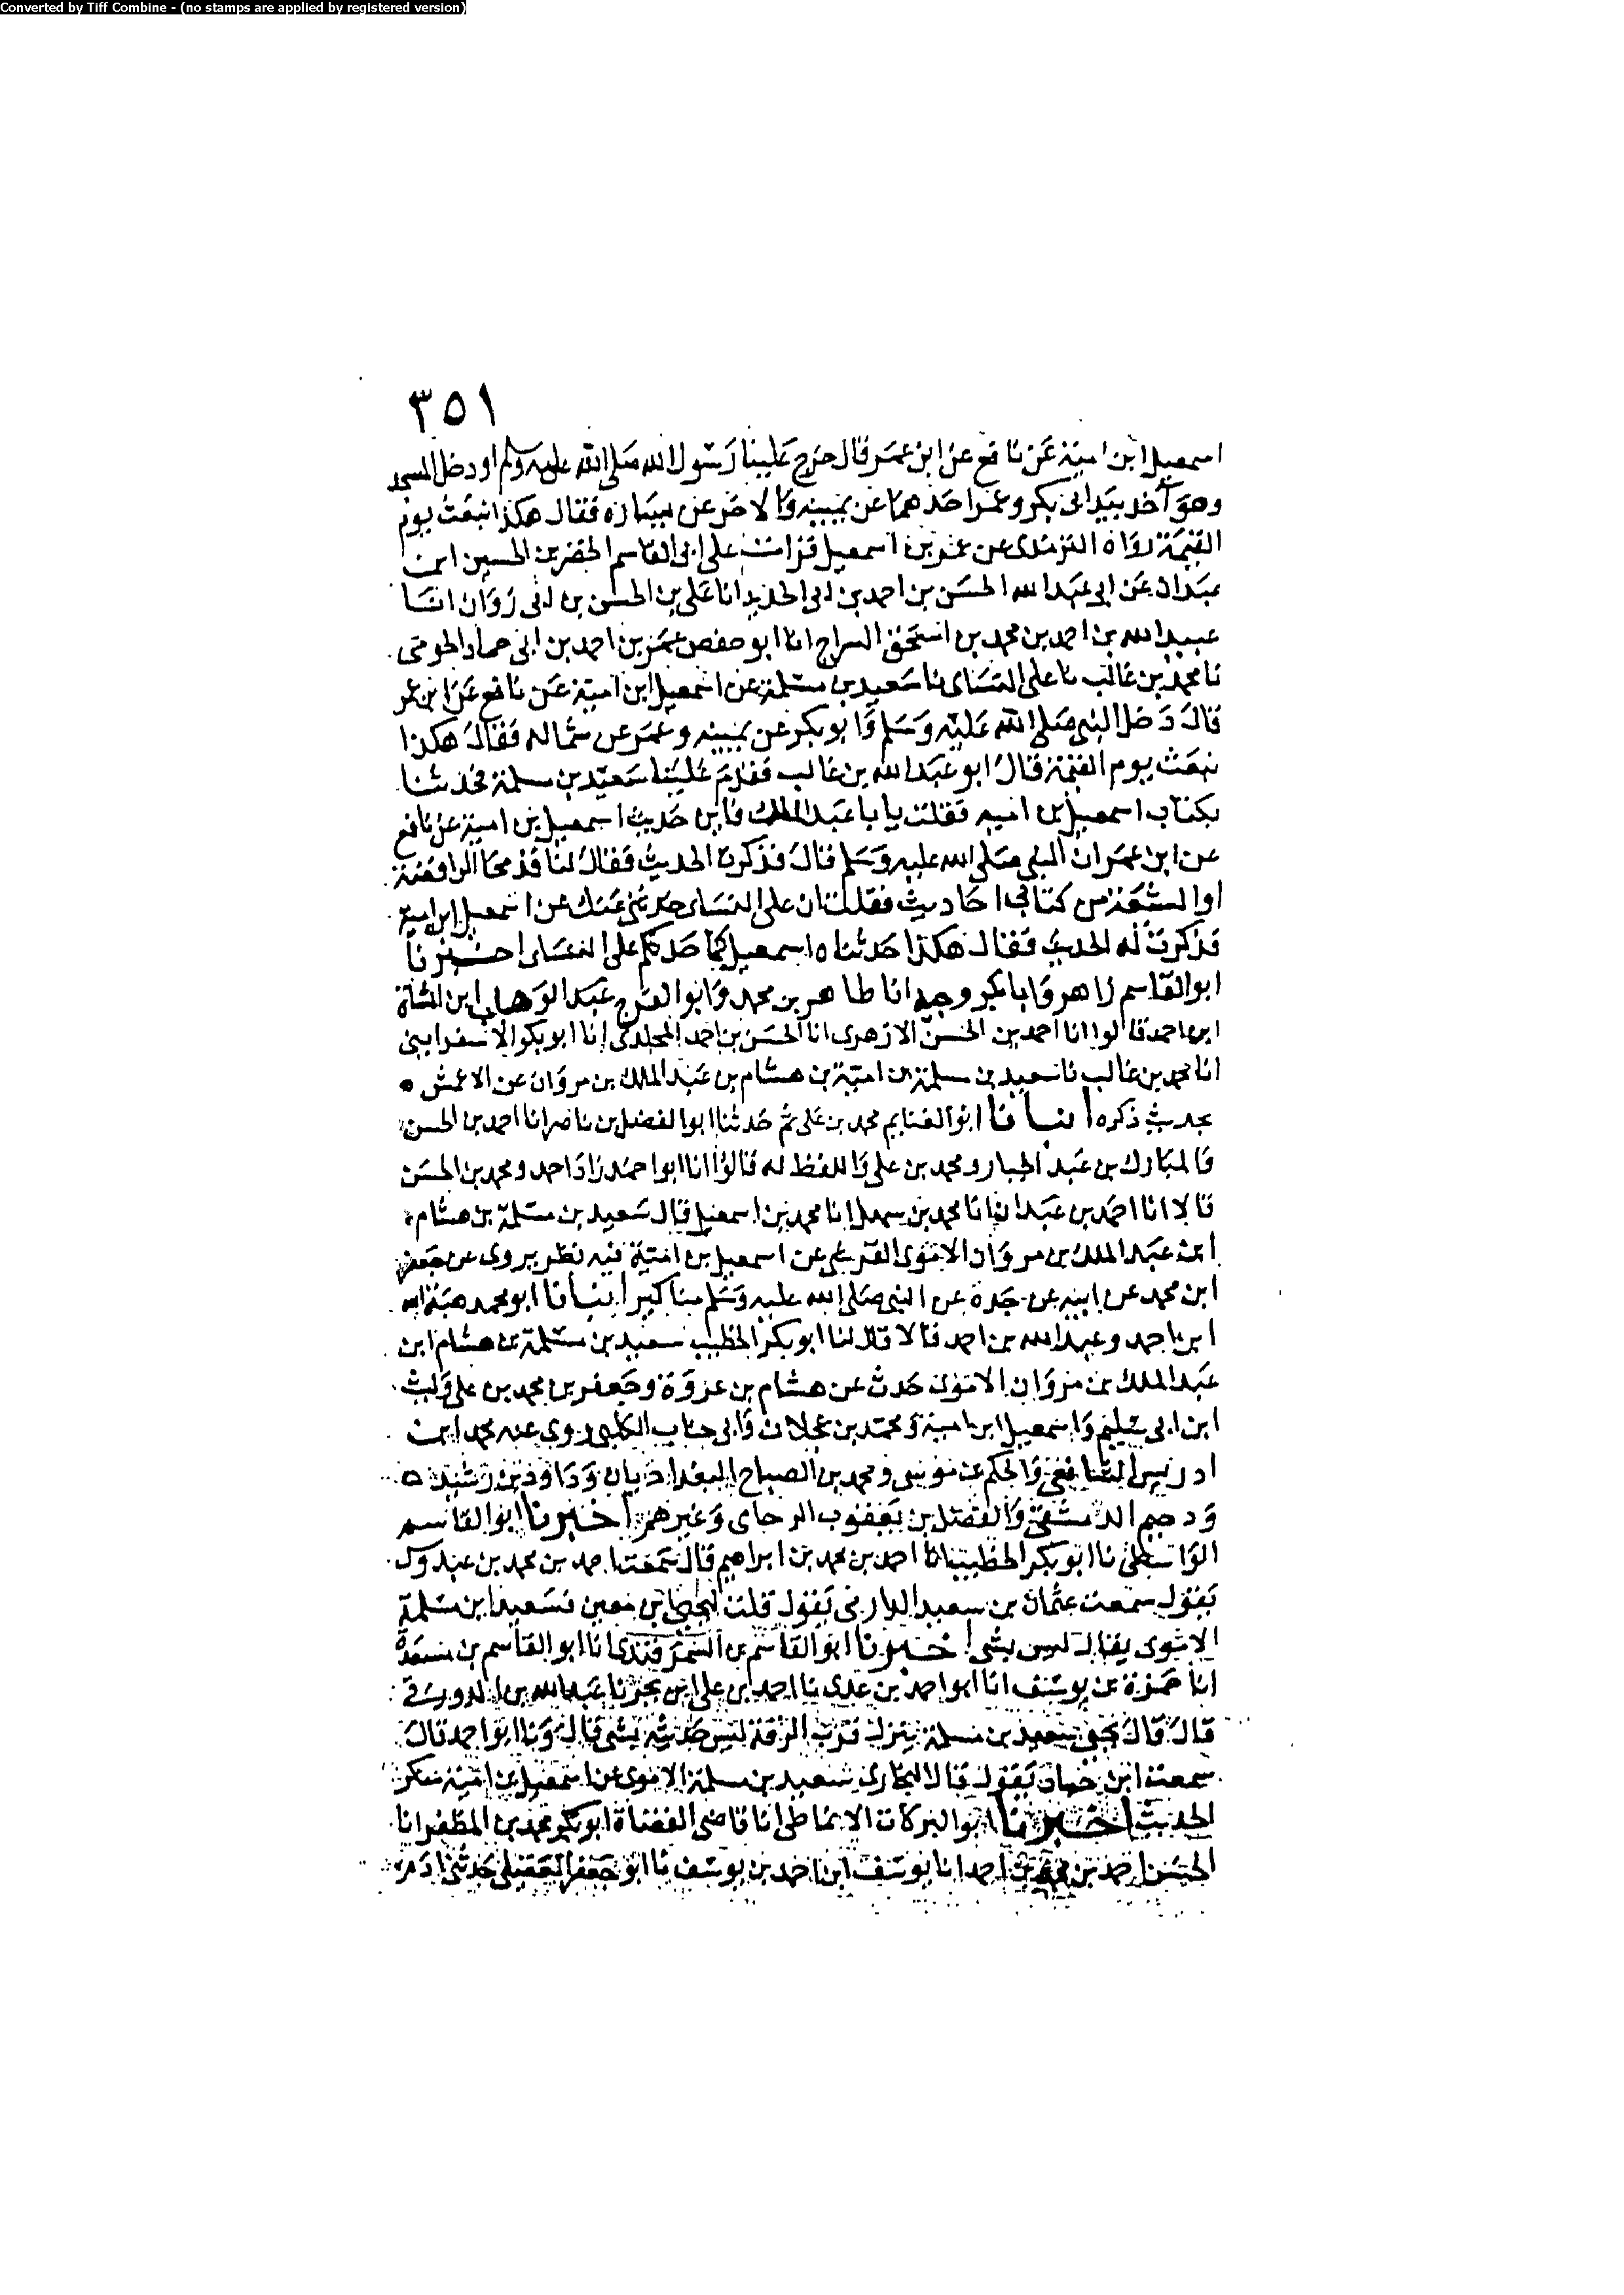 Converted by Tiff Combine - (no stamps are applied by registered version)
٣٥١
اسمعيل ابن امية عن نافع عن ابن عمر قال خرج علينا رسول الله صلى الله عليه وسلم او دخل المسجد
وهو آخذ بيد ابى بكر وعمر احدهما عن يمينه والاخر عن يساره فقال هكذا نبعث يوم
القيمة رواه الترمذى عن عمر بن اسمعيل قرات على ابى القاسم الخضر بن الحسين ابن
عبدان عن ابى عبد الله الحسن بن احمد بن ابى الحديد انا على بن الحسن بن ابى زوان انا
عبيد الله بن احمد بن محمد بن اسحق السراج انا ابو حفص عمر بن احمد بن ابى حماد
نا محمد بن غالب نا على النساى نا سعيد بن مسلمة عن اسمعيل ابن امية عن نافع عن ابن عمر
قال دخل النبى صلى الله عليه وسلم وابو بكر عن يمينه وعمر عن شماله فقال هكذا
نبعث يوم القيمة قال ابو عبد الله بن غالب فقدم علينا سعيد بن مسلمة فحدثنا
بكتاب اسمعيل بن اميه فقلت يا با عبد الملك فاين حديث اسمعيل بن امية عن نافع
عن ابن عمر ان النبى صلى الله عليه وسلم قال فذكرت الحديث فقال لنا قد محا الرافضة
او الشقة من كتابى احاديث فقلت ان على النساى حدثنى عنك عن اسمعيل ابن امية
فذكرت له الحديث فقال هكذا حدثناه اسمعيل كما حدثكم على النساى اخبرنا
ابو القاسم زاهر وابا بكر وجيه انا طاهر بن محمد وابو الفرج عبد الوهاب ابن الشاة
ابن احمد قالوا انا احمد بن الحسن الازهرى انا الحسن بن احمد المخلدى انا ابو بكر الاسفراينى
انا محمد بن غالب نا سعيد بن مسلمة بن امية بن هشام بن عبد الملك بن مروان عن الاعمش
بحديث ذكره انبانا ابو الغنايم محمد بن على ثم حدثنا ابو الفضل بن ناصر انا احمد بن الحسن
والمبارك بن عبد الجبار ومحمد بن على واللفظ له قالوا انا ابو احمد زاد احمد ومحمد بن الحسن
قالا انا احمد بن عبدان انا محمد بن سهل انا محمد بن اسمعيل قال سعيد بن مسلمة بن هشام
ابن عبد الملك بن مروان الاموى القرشى عن اسمعيل بن امية فيه نظر يروى عن جعفر
ابن محمد عن ابيه عن جده عن النبى صلى الله عليه وسلم مناكير انبانا ابو محمد هبة الله
ابن احمد وعبد الله بن احمد قالا قال لنا ابو بكر الخطيب سعيد بن مسلمة بن هشام ابن
عبد الملك بن مروان الاموى حدث عن هشام بن عروة وجعفر بن محمد بن على وليث
ابن ابى سليم واسمعيل ابن امية ومحمد بن عجلان وابى جناب الكلبى روى عنه محمد ابن
ادريس الشافعى والحكم بن موسى ومحمد بن الصباح البغداديان وداود بن رشيد
ودحيم الدمشقى والفضل بن يعقوب الرخاى وغيرهم اخبرنا ابو القاسم
الواسطى نا ابو بكر الخطيب انا احمد بن محمد بن ابراهيم قال سمعت احمد بن محمد بن عبدوس
يقول سمعت عثمان بن سعيد الدارمى يقول قلت ليحيى بن معين فسعيد ابن مسلمة
الاموى يقال ليس بشى اخبرنا ابو القاسم بن السمرقندى انا ابو القاسم بن مسعدة
انا حمزة بن يوسف انا ابو احمد بن عدى نا احمد بن على ابن بحر نا عبد الله بن الدورقى
قال قال يحيى سعيد بن مسلمة ينزل قرب الرقة ليس حديثه بشى قال ونا ابو احمد قال
سمعت ابن حماد يقول قال البخارى سعيد بن مسلمة الاموى عن اسمعيل بن امية منكر
الحديث اخبرنا ابو البركات الانماطى انا قاضى القضاة ابو بكر محمد بن المظفر انا
الحسن احمد بن محمد بن احمد انا يوسف ابن احمد بن يوسف نا ابو جعفر العقيلى حدثنى ادم